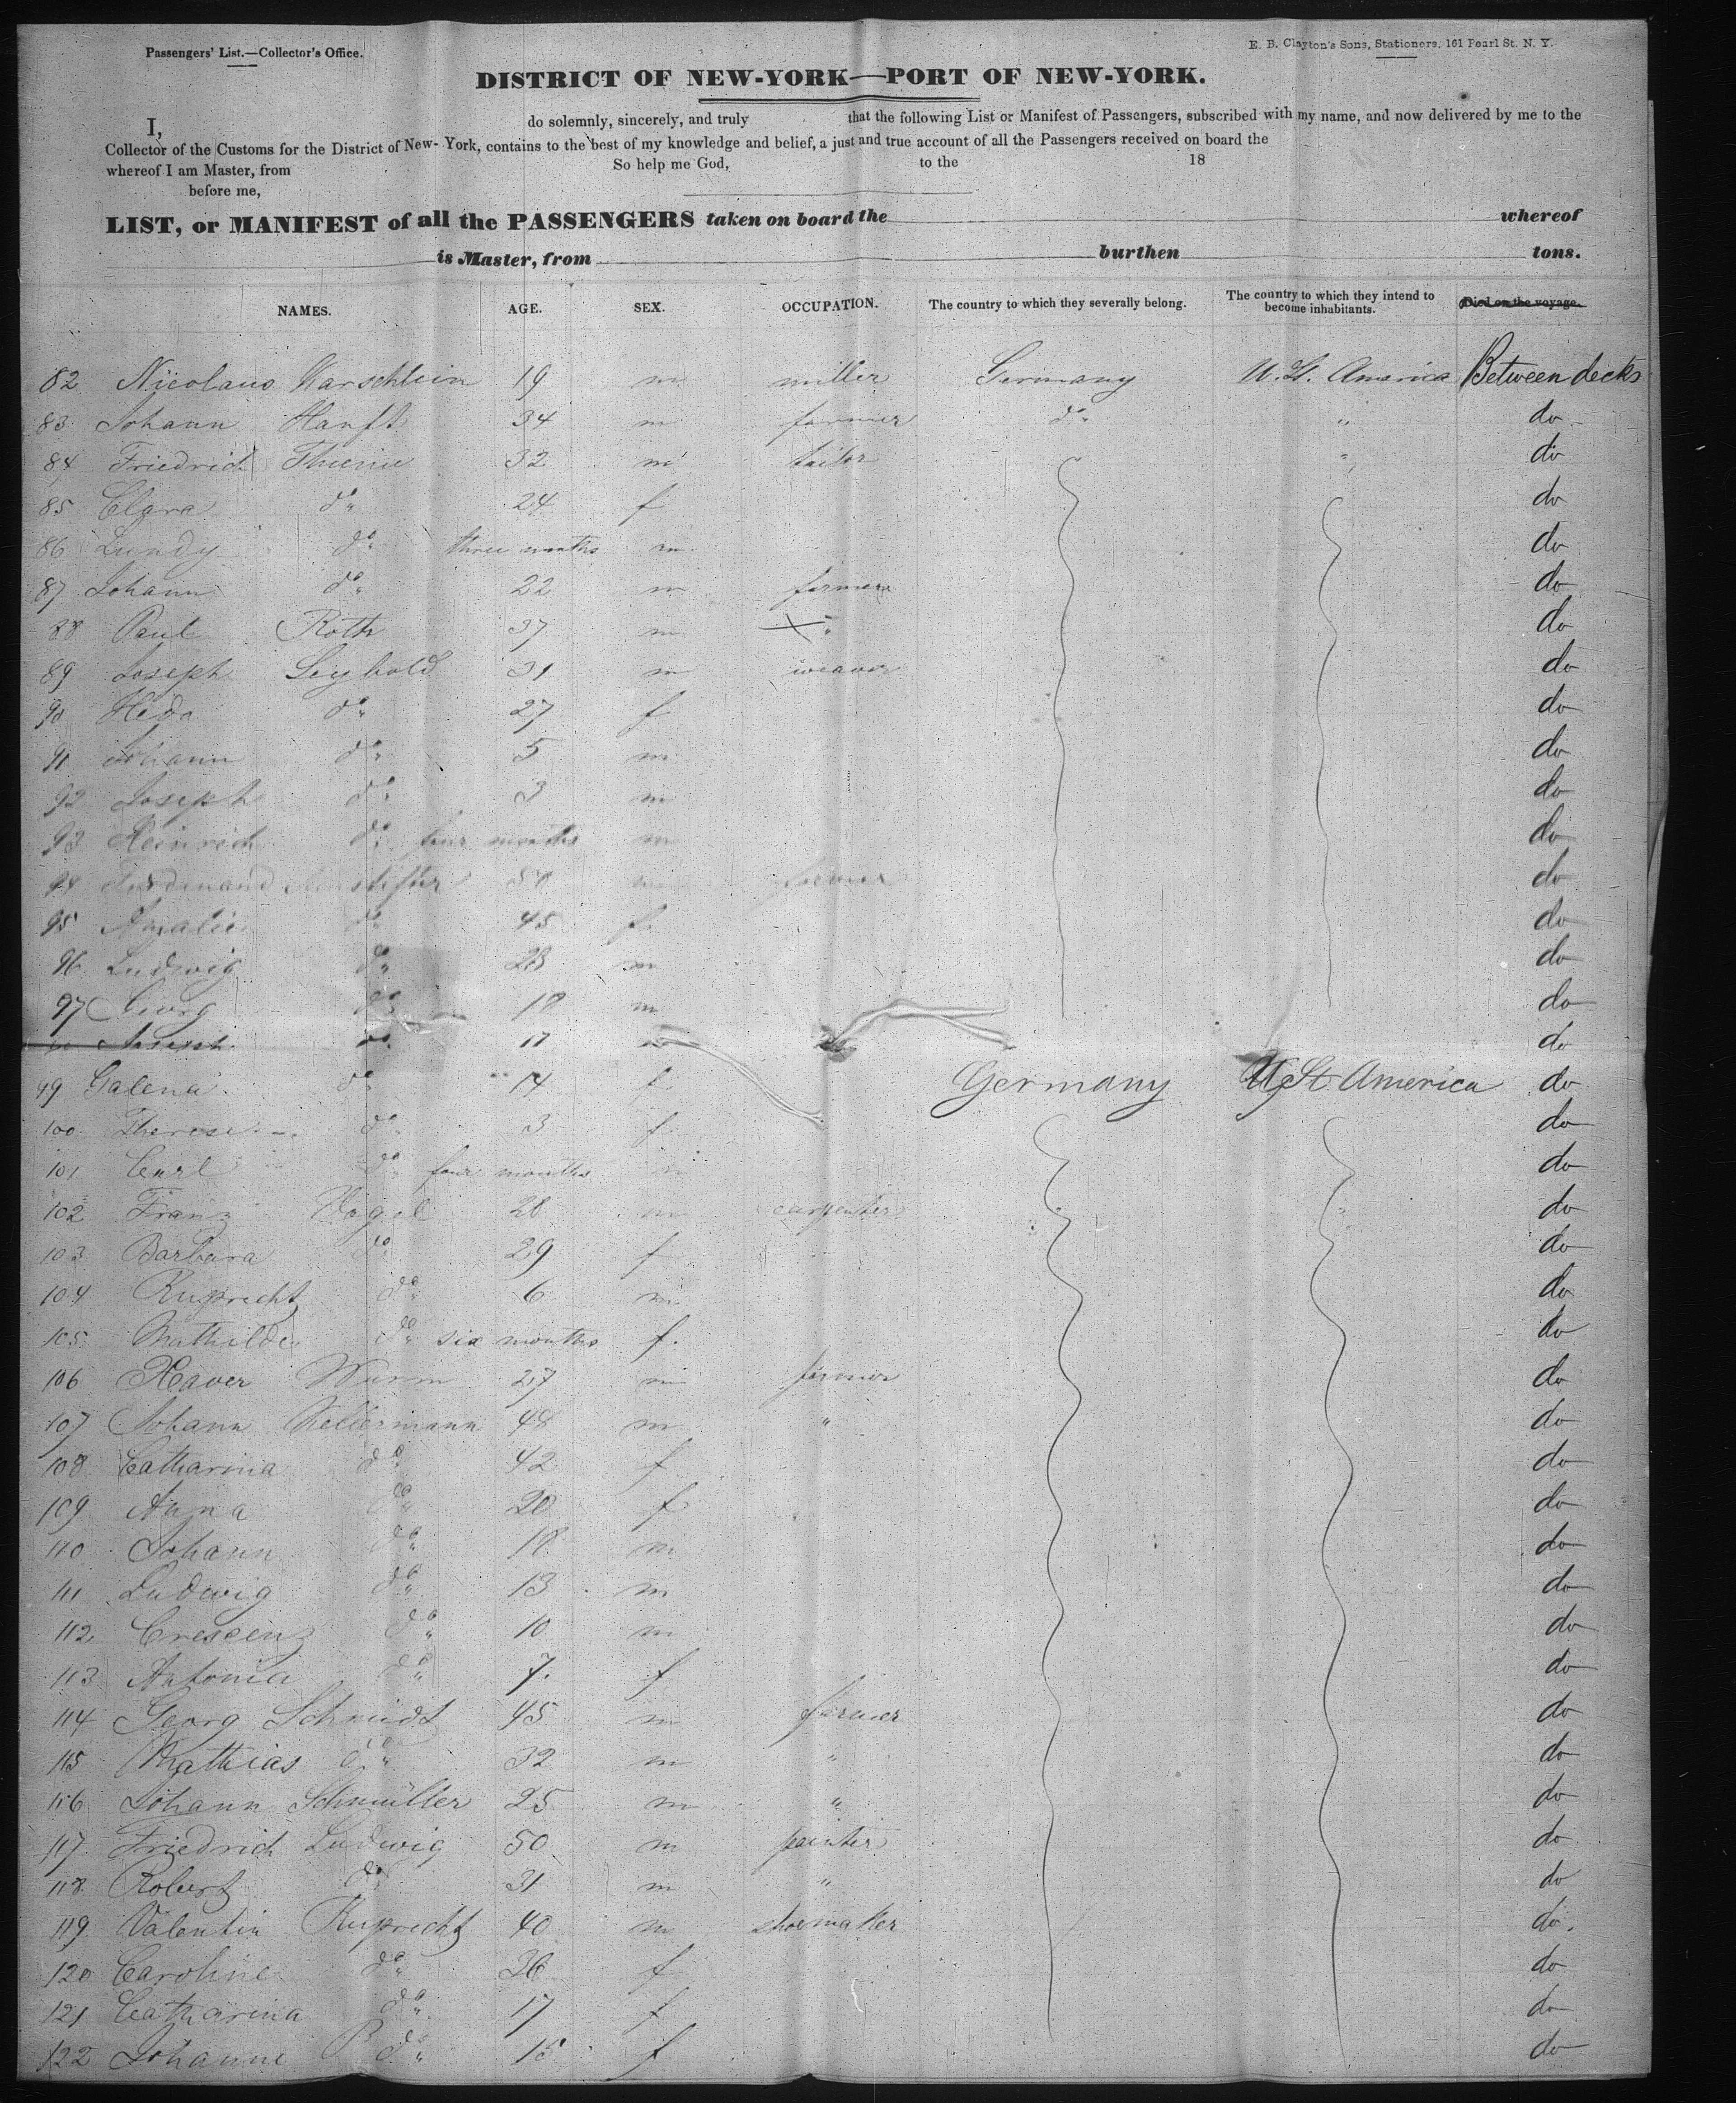 Passengers' List.—Collector's Office.
E. B. Clayton's Sons, Stationers, 161 Pearl St. N. Y.
DISTRICT OF NEW-YORK—PORT OF NEW-YORK.
I, do solemnly, sincerely, and truly that the following List or Manifest of Passengers, subscribed with my name, and now delivered by me to the
Collector of the Customs for the District of New-York, contains to the best of my knowledge and belief, a just and true account of all the Passengers received on board the
whereof I am Master, from So help me God, to the 18
before me,
LIST, or MANIFEST of all the PASSENGERS taken on board the whereof
is Master, from burthen tons.
NAMES. AGE. SEX. OCCUPATION. The country to which they severally belong. The country to which they intend to become inhabitants. Died on the voyage.
82 Nicolaus 19 m miller Germany U. St. America Between decks
83 Johann Hanft 34 m farmer do " do
84 Friedrich Thieme 32 m tailor " do
85 Clara do 24 f do
86 Lundy do three months m do
87 Johann do 22 m farmer do
88 Paul Roth 37 m " do
89 Joseph Seybold 31 m weaver do
90 Heda do 27 f do
91 Johann do 5 m do
92 Joseph do 3 m do
93 Heinrich do four months m do
94 Ferdinand m farmer do
95 Amalie do 45 f do
96 Ludwig do 28 m do
97 Georg do 18 m do
Joseph do 17 do
99 Galena do 14 f Germany U. St. America do
100 Therese do 3 f do
101 Carl do four months m do
102 Franz Vogel 28 m carpenter " " do
103 Barbara do 29 f do
104 Ruprecht do 6 m do
105 Mathilde do six months f. do
106 Xaver Wurm 27 m farmer do
107 Johann Kellermann 48 m " do
108 Catharina do 42 f do
109 Anna do 20 f do
110 Johann do 18 m do
111 Ludwig do 13 m do
112 Crescenz do 10 m do
113 Antonia do 7. f do
114 Georg Schmidt 45 m farmer do
115 Mathias do 32 m " do
116 Johann Schmüller 25 m " do
117 Friedrich Ludwig 50 m painter do
118 Robert do 31 m " do
119 Valentin Ruprecht 40 m shoemaker do.
120 Caroline do 36 f do
121 Catharina do 17 f do
122 Johanne do f do